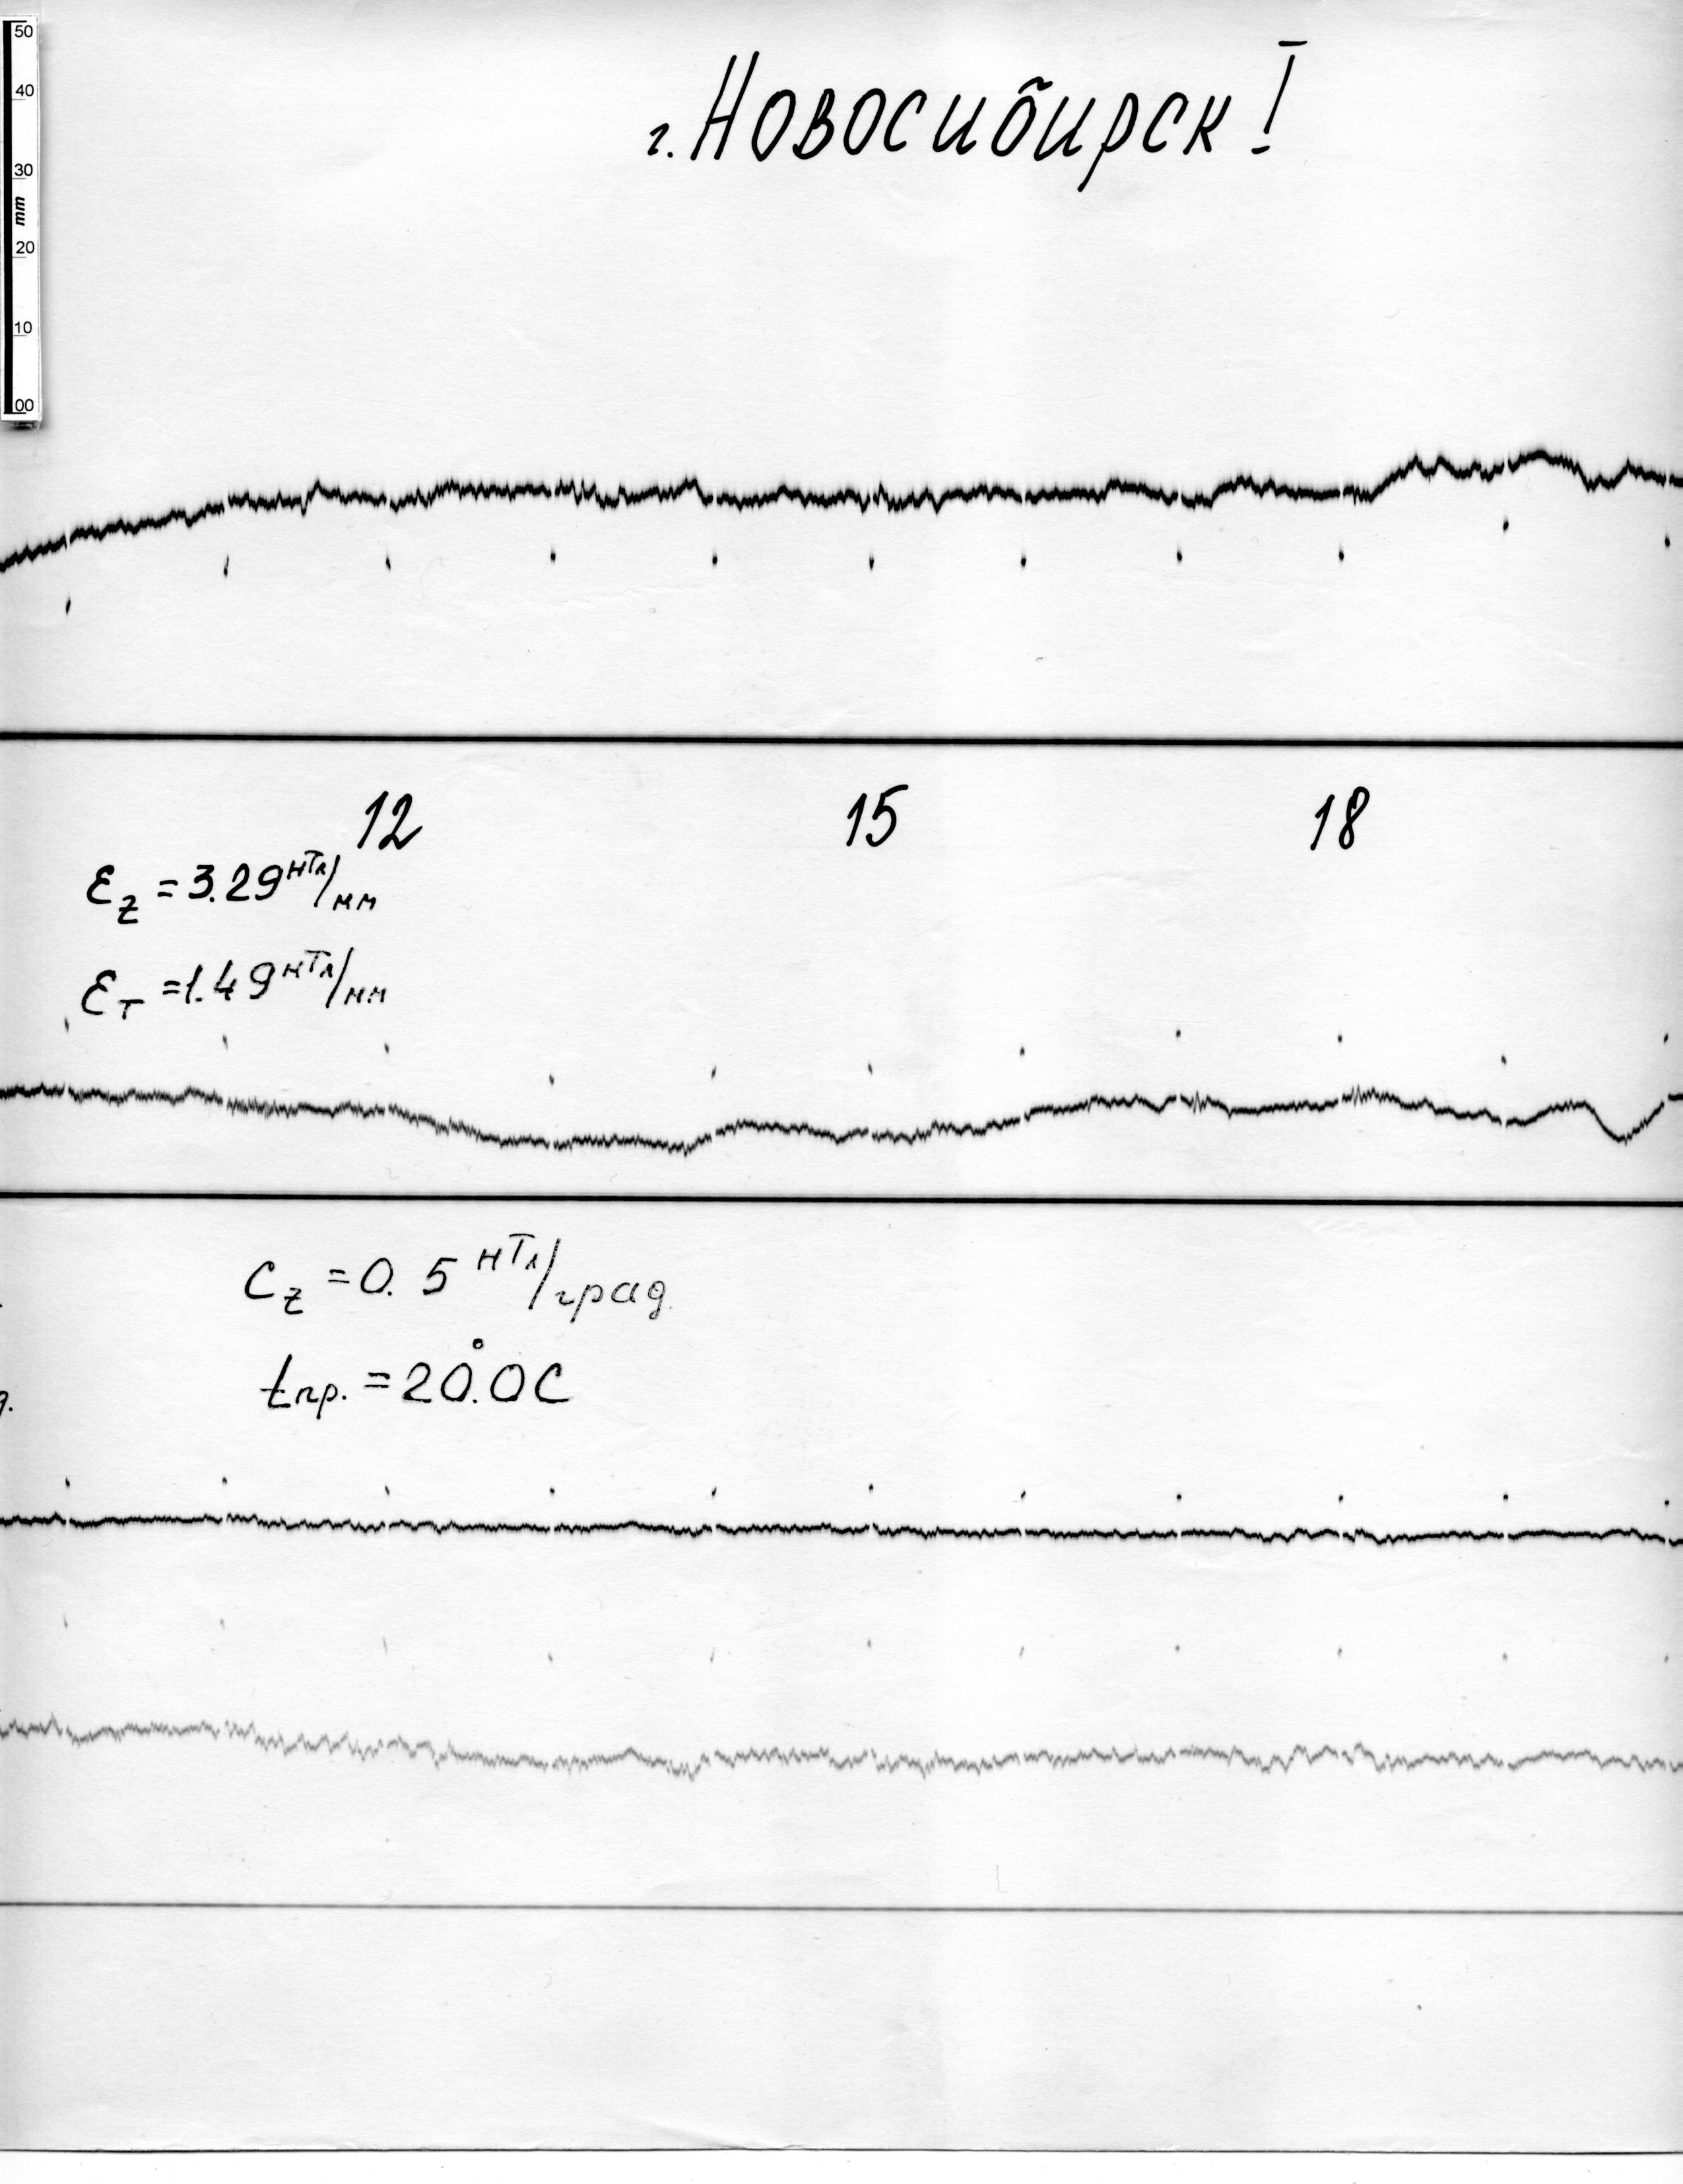 50
40
30
mm
20
10
00
г. Новосибирск I
12 15 18
Ɛz = 3.29 нТл/мм
Ɛт = 1.49 нТл/мм
Cz = 0.5 нТл/град.
tпр. = 20.0°C